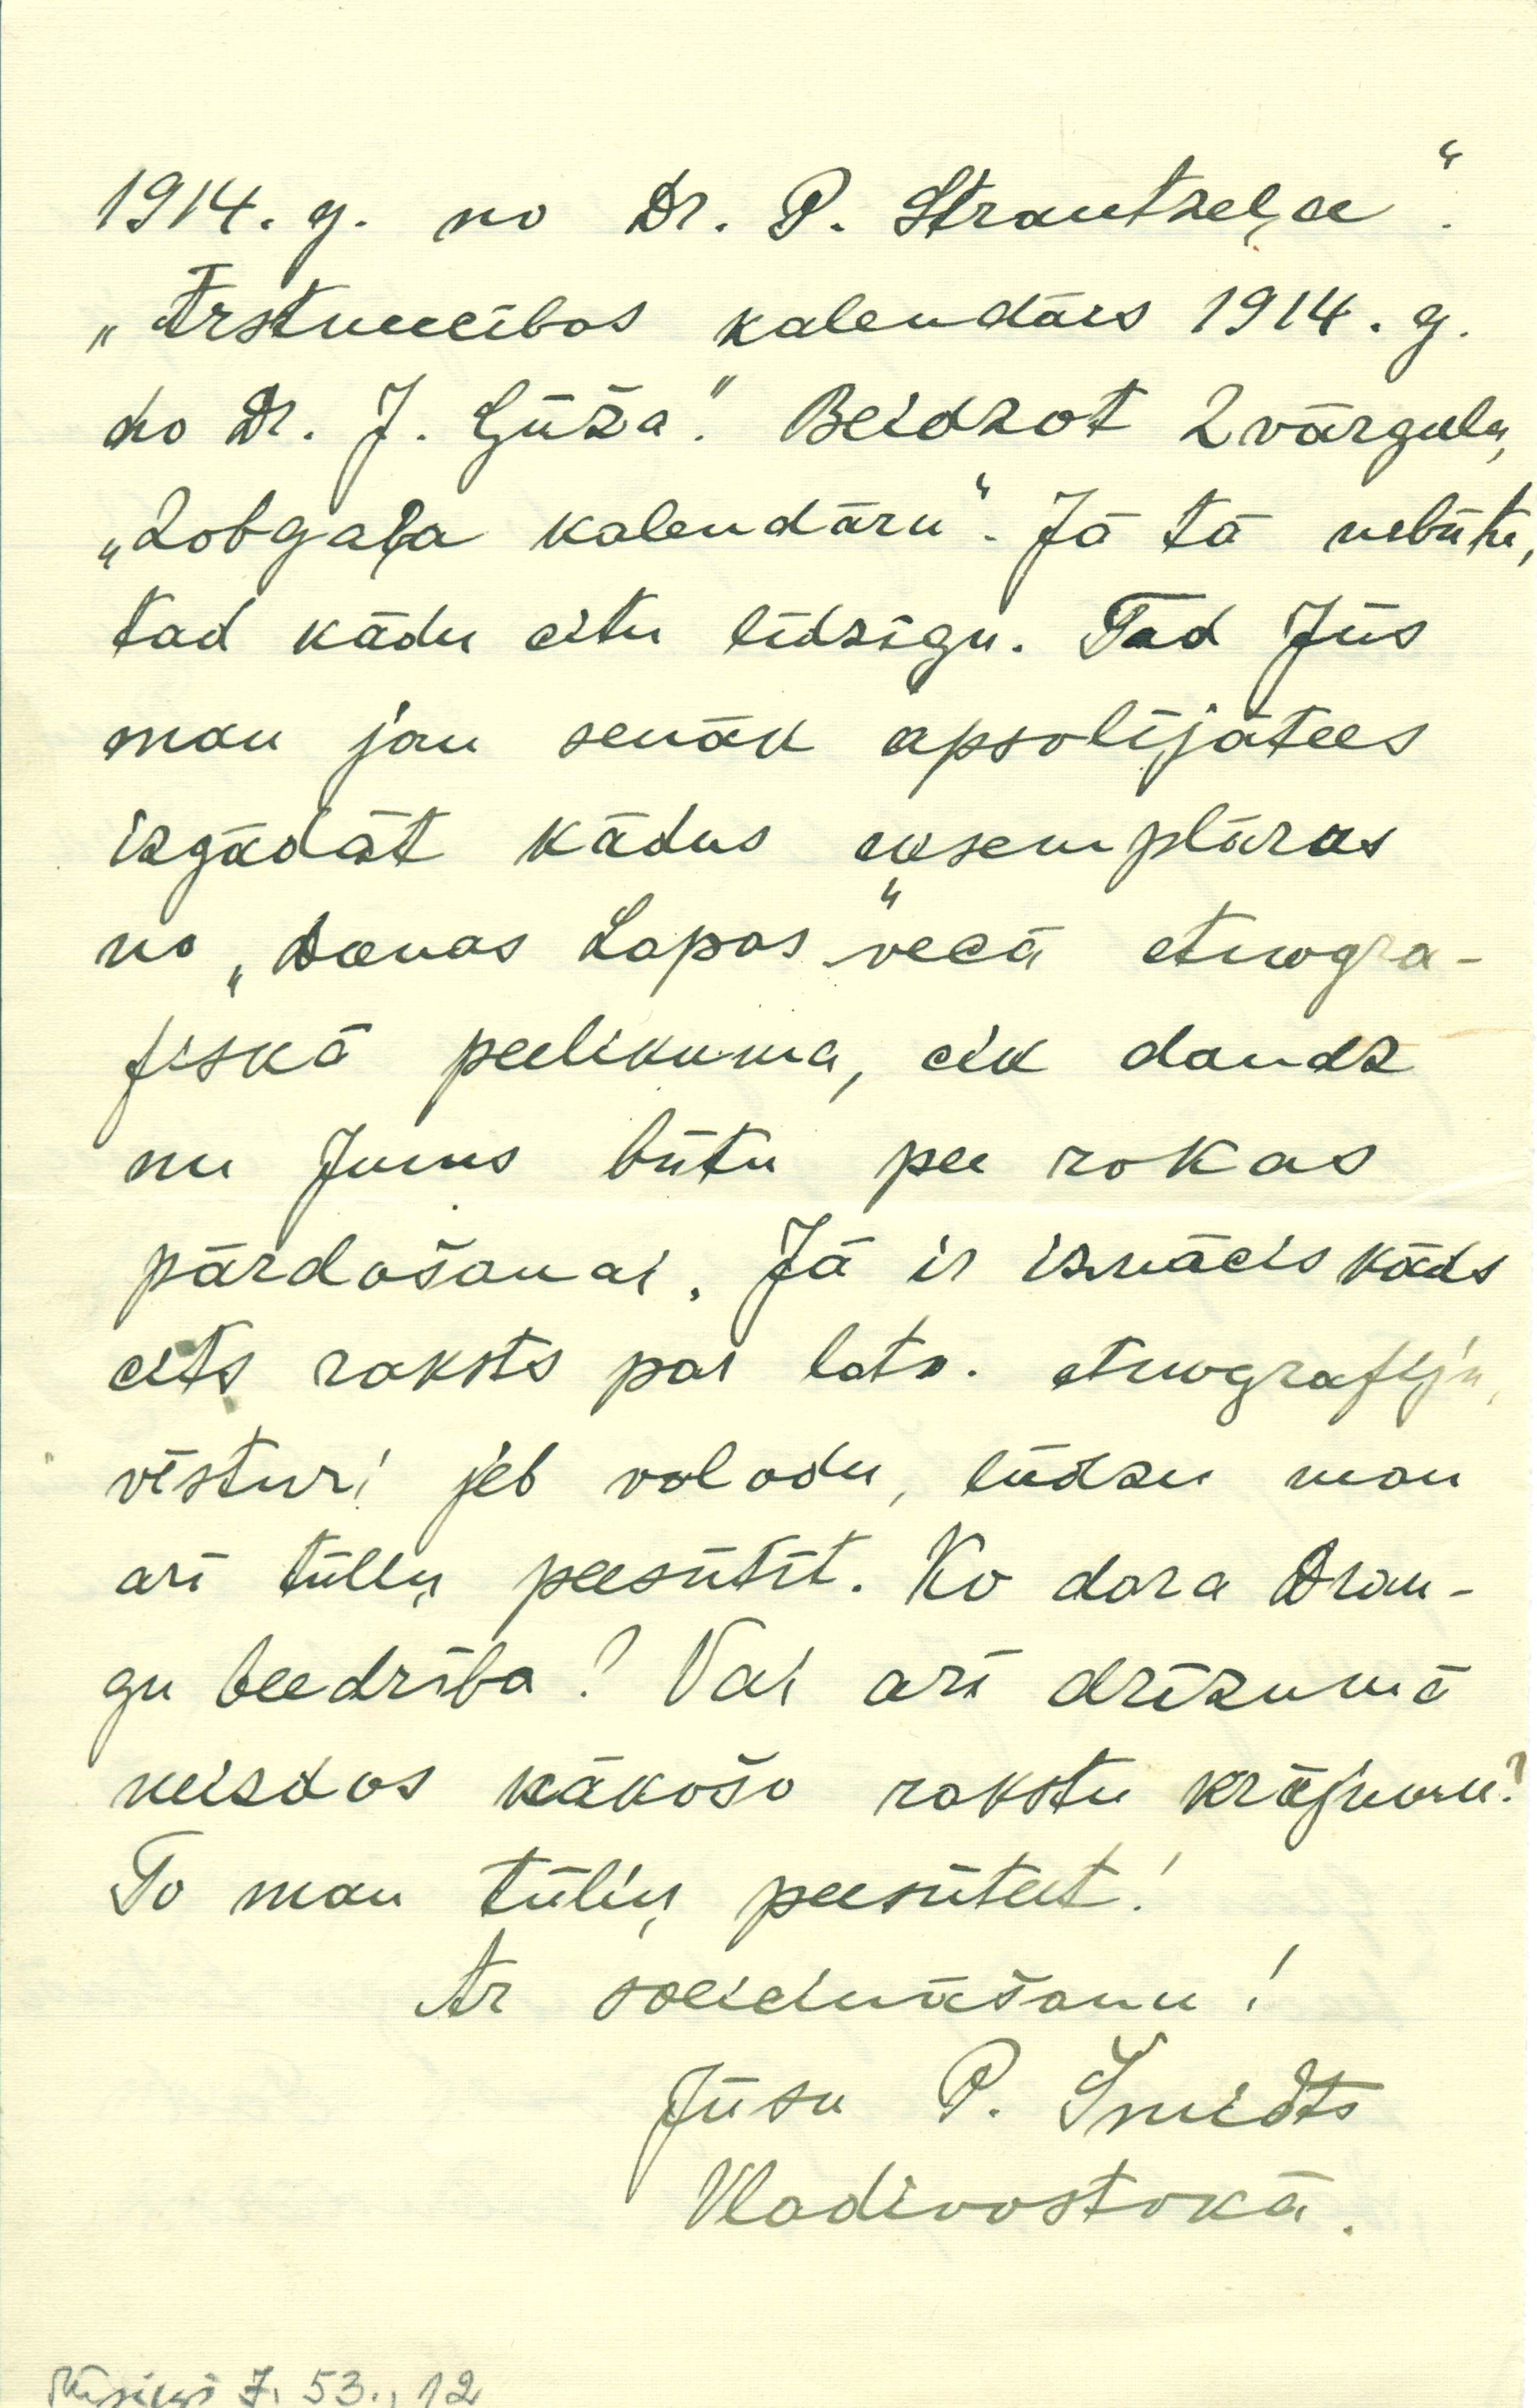 1914. g. no Dr. P. Strautzeļa“.
„Ārstniecības kalendārs 1914. g.
no Dr. J. Gūža“. Beidzot Zvārguļu
„Zobgaļa kalendāru“. Jā tā nebūtu,
tad kādu citu līdzīgu. Tad Jūs
man jau senāk apsolījātees
izgādāt kādus eksemplārus
no „Deenas Lapas“ vecā etnogra-
fiskā peelikuma, cik daudz
nu Jums būtu pee rokas
pārdošanai. Jā ir iznācis kāds
cits raksts par latv. etnografiju,
vēsturi jeb valodu, lūdzu man
arī tūliņ peesūtīt. Ko dara Drau-
gu beedrība? Vai arī drīzumā
neizdos nākošo rakstu krājumu?
To man tūliņ peesūteet!
Ar sveicināšanu!
Jūsu P. Šmidts
Vladivostokā.
53., 12